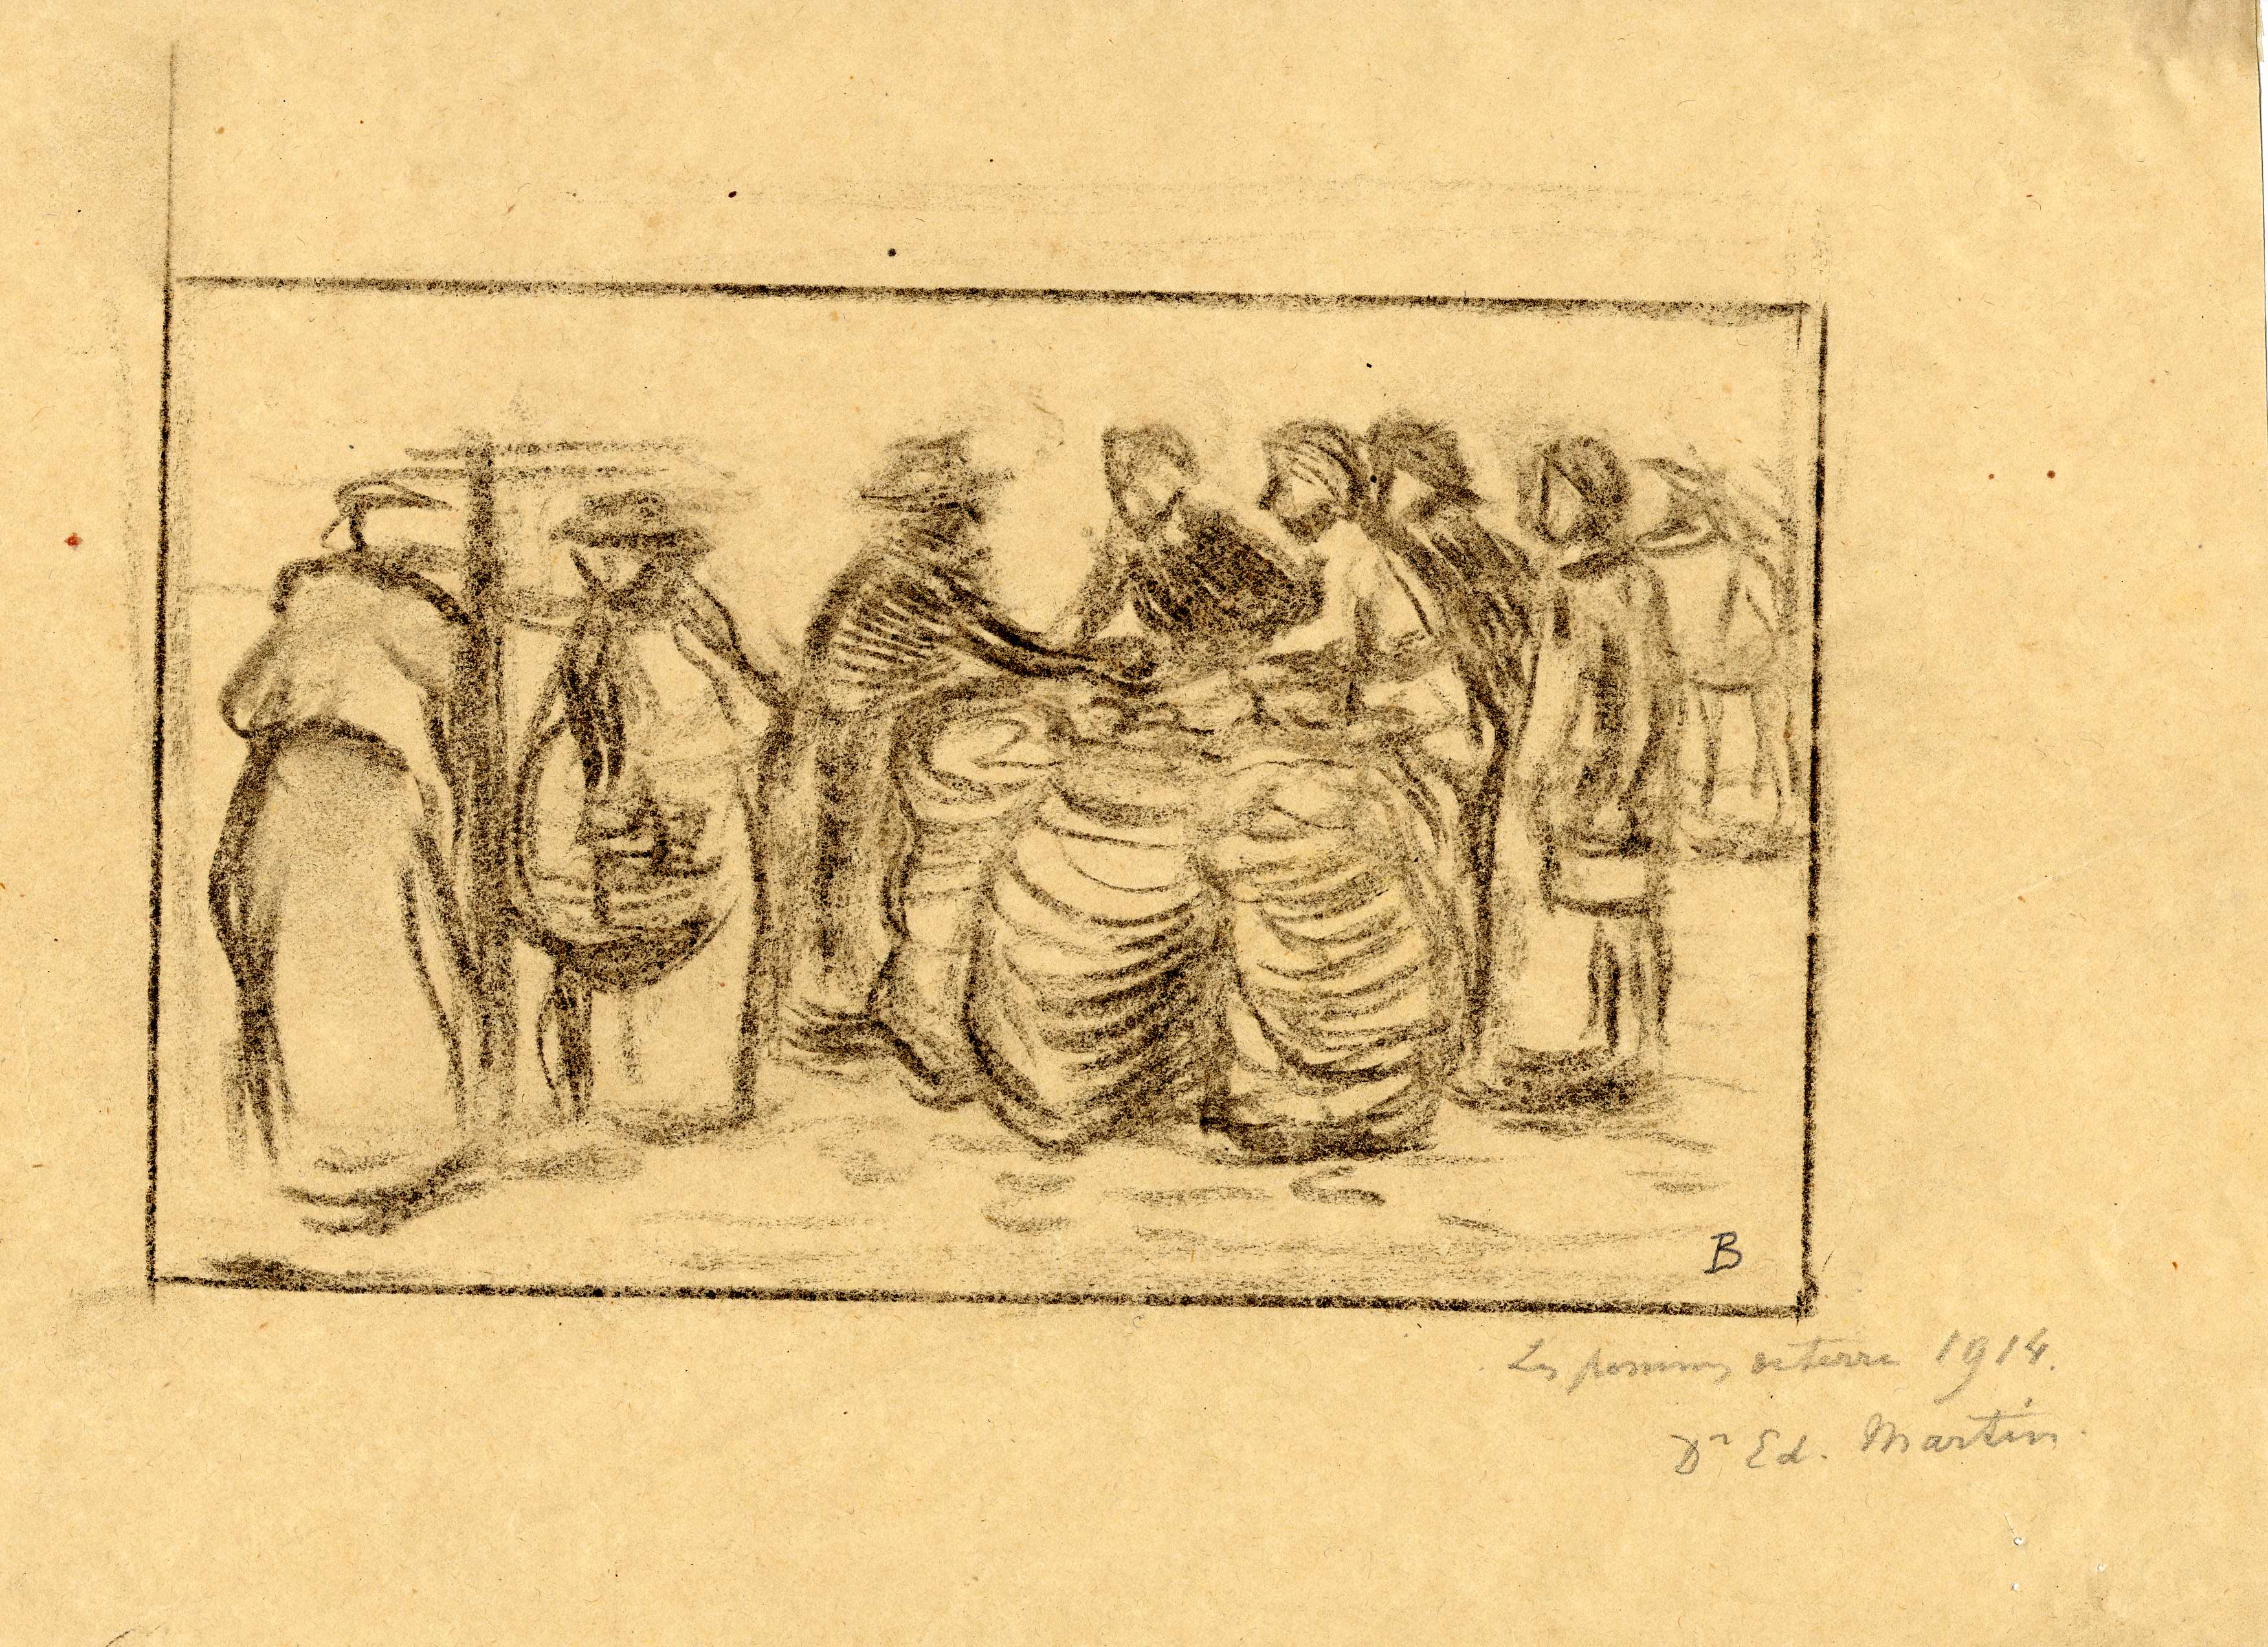 B
Les pommes de terre 1914.
Dr Ed. Martin.